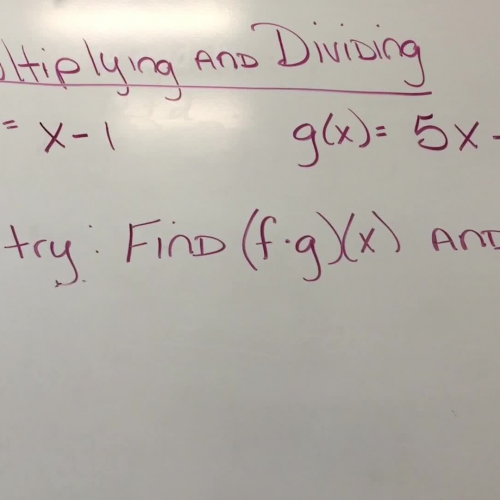 ltiplying AND Dividing
= x-1 g(x)= 5x-
try: Find (f·g)(x) AND